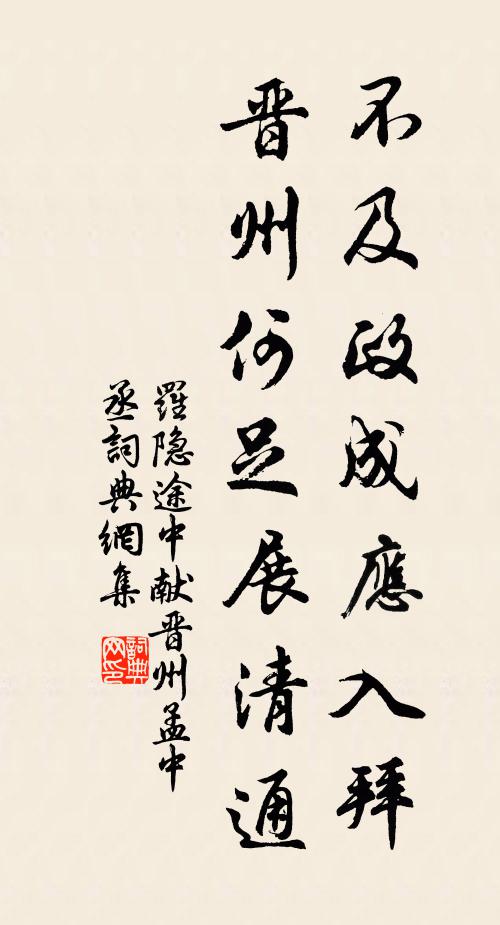 不及政成應入拜
晋州何足展清通
羅隐途中献晋州孟中
丞詞典網集
詞典
网印